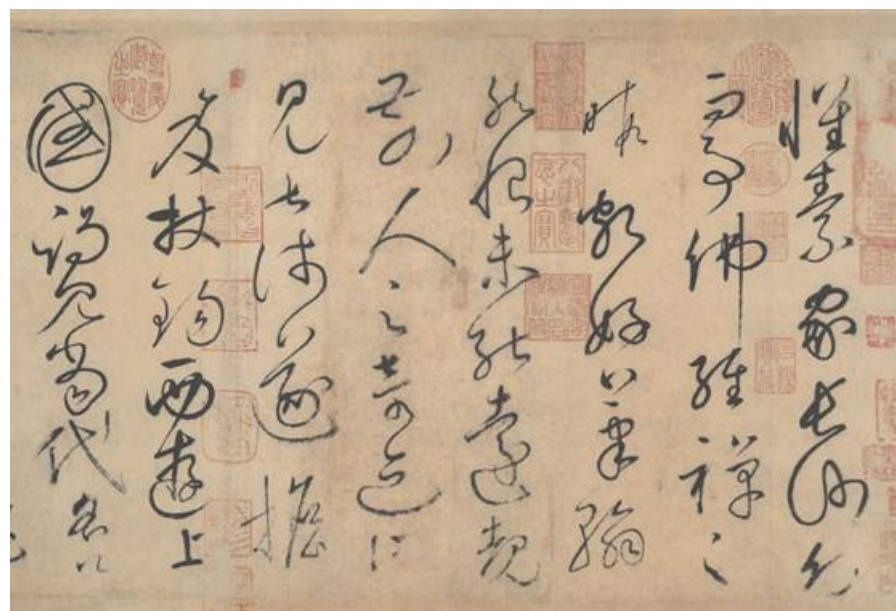 懷素家長沙幼
而事佛經禪之
暇頗好筆翰
然恨未能遠覩
前人之奇迹所
見甚淺遂擔
笈杖錫西遊上
國謁見當代名公